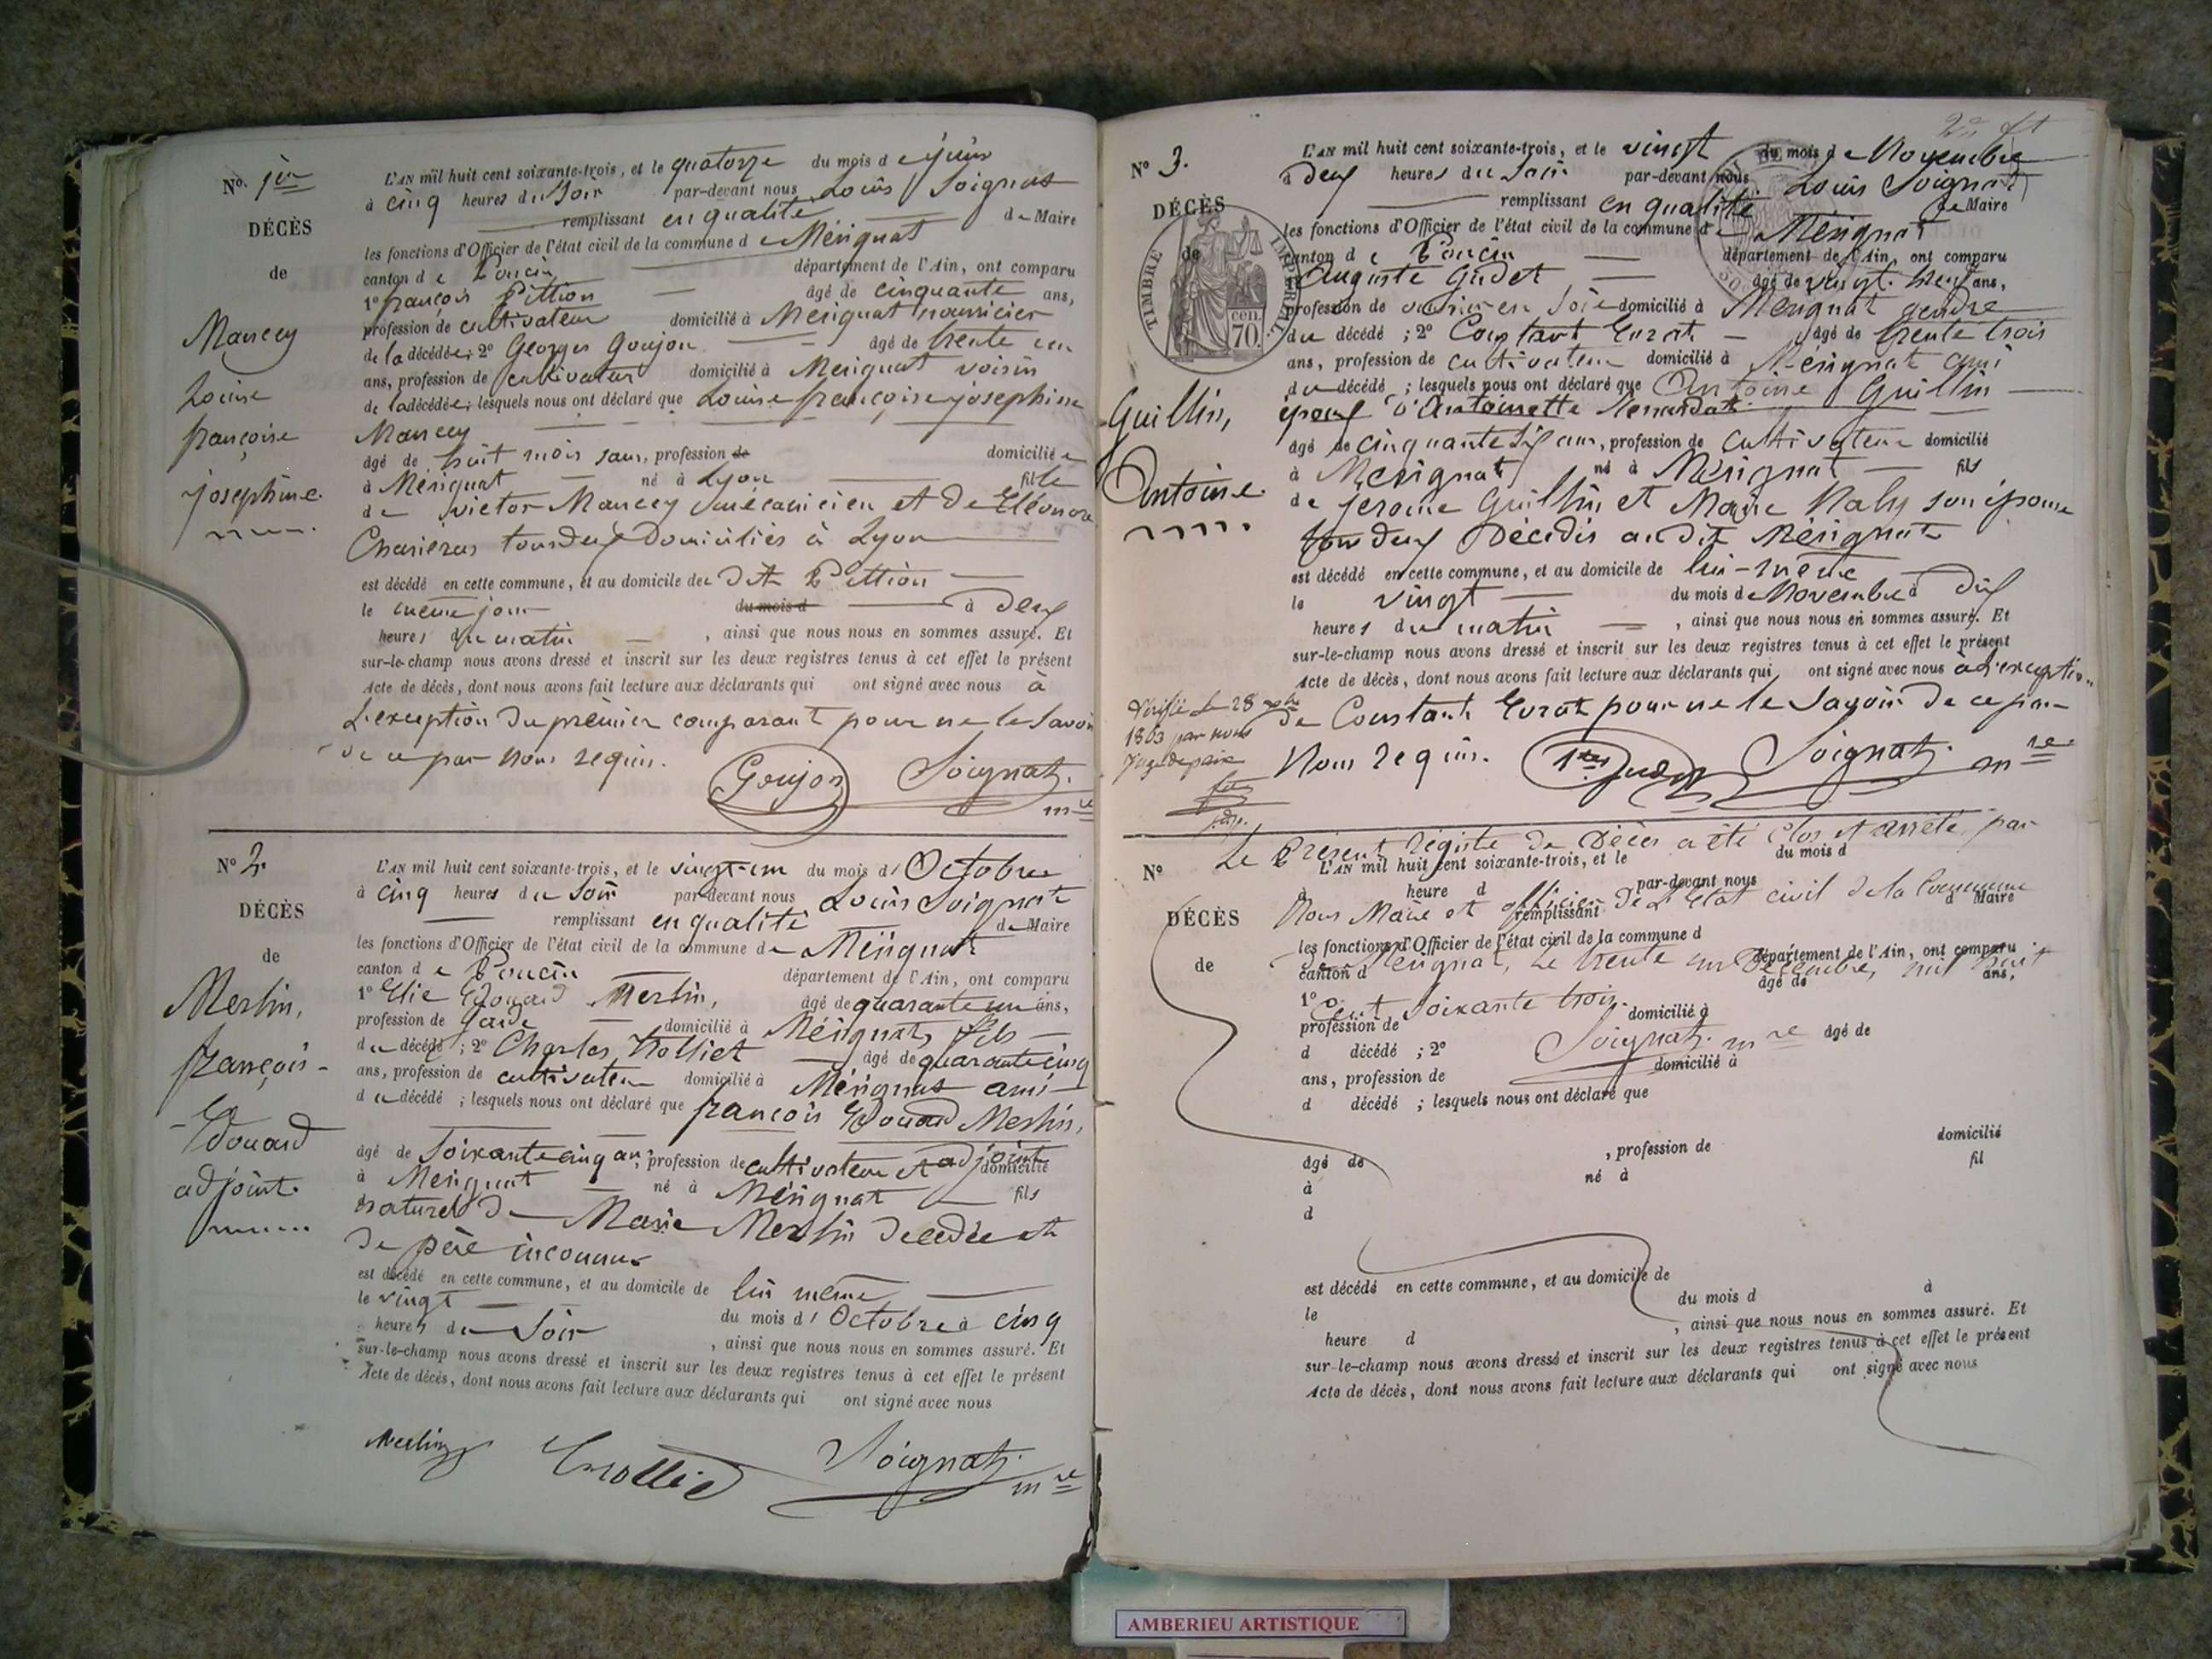 No. 1er
L'AN mil huit cent soixante-trois, et le quatorze du mois de juin
à cinq heures du Soir par-devant nous Louis Soignat
remplissant en qualité de Maire
DÉCÈS
les fonctions d'Officier de l'état civil de la commune de Mérignat
de
canton de Poncin département de l'Ain, ont comparu
1° françois Pittion âgé de cinquante ans,
Mancey
profession de cultivateur domicilié à Mérignat nourricier
de la décédée; 2° Georges Goujon âgé de trente un
ans, profession de cultivateur domicilié à Mérignat voisin
Louise
de la décédée; lesquels nous ont déclaré que Louise françoise josephine
françoise
Mancey
âgé de huit mois sans, profession de domiciliée
à Mérignat né à Lyon fille
josephine
de victor Mancey mécanicien et de Eléonore
tous deux Domiciliés à Lyon
est décédé en cette commune, et au domicile de dit Pittion
le même jour du mois d à deux
heures du matin, ainsi que nous nous en sommes assuré. Et
sur-le-champ nous avons dressé et inscrit sur les deux registres tenus à cet effet le présent
Acte de décès, dont nous avons fait lecture aux déclarants qui ont signé avec nous à
L'exception du premier comparant pour ne le Savoir
de ce par Nous requis.
Goujon Soignat
mre
N° 2.
L'AN mil huit cent soixante-trois, et le vingt-un du mois d' Octobre
à cinq heures du Soir par-devant nous Louis Soignat
DÉCÈS
remplissant en qualité de Maire
les fonctions d'Officier de l'état civil de la commune de Mérignat
de
canton de Poncin département de l'Ain, ont comparu
1° Elie Edouard Merlin, âgé de quarante un ans,
Merlin,
profession de Garde domicilié à Mérignat, fils
du décédé; 2° Charles Trolliet âgé de quarante cinq
ans, profession de cultivateur domicilié à Mérignat ami
françois
du décédé; lesquels nous ont déclaré que françois Edouard Merlin,
Edouard
âgé de Soixante cinq ans, profession de cultivateur et adjoint domicilié
adjoint.
à Mérignat né à Mérignat fils
naturel de Marie Merlin décédée et
De père inconnu
est décédé en cette commune, et au domicile de lui même
le vingt du mois d' Octobre à cinq
heures du Soir, ainsi que nous nous en sommes assuré. Et
sur-le-champ nous avons dressé et inscrit sur les deux registres tenus à cet effet le présent
Acte de décès, dont nous avons fait lecture aux déclarants qui ont signé avec nous
Merlin Trolliet Soignat
mre
N° 3.
L'AN mil huit cent soixante-trois, et le vingt du mois de Novembre
à Deux heures du Soir par-devant nous Louis Soignat
DÉCÈS
remplissant en qualité de Maire
les fonctions d'Officier de l'état civil de la commune de Mérignat
de
canton de Poncin département de l'Ain, ont comparu
TIMBRE IMPÉRIAL
70 cen.
1° Auguste Gudet âgé de vingt neuf ans,
profession de ouvrier en Soie domicilié à Mérignat gendre
du décédé; 2° Constant Evrat âgé de trente trois
ans, profession de cultivateur domicilié à Mérignat ami
du décédé; lesquels nous ont déclaré que Antoine Guillin
Guillin,
époux d'Antoinette
âgé de cinquante six ans, profession de cultivateur domicilié
Antoine.
à Mérignat né à Mérignat fils
de jerome Guillin et Marie son épouse
tous deux Décédés au dit Mérignat
est décédé en cette commune, et au domicile de lui-même
le vingt du mois de Novembre à Dix
heures du matin, ainsi que nous nous en sommes assuré. Et
sur-le-champ nous avons dressé et inscrit sur les deux registres tenus à cet effet le présent
Acte de décès, dont nous avons fait lecture aux déclarants qui ont signé avec nous à l'exception
Vérifié le 28
1863 par nous
juge de paix
de Constant Evrat pour ne le Savoir de ce par
Nous requis. Soignat mre
Le Présent Registre de Décès a été Clos et arrêté par
N°
L'AN mil huit cent soixante-trois, et le du mois d
à heure d par-devant nous
Nous Maire et officier De L'Etat civil de la Commune
DÉCÈS
remplissant d Maire
les fonctions d'Officier de l'état civil de la commune d
de
De Mérignat, Le trente un Décembre, mil huit
canton d département de l'Ain, ont comparu
1° âgé de ans,
Cent Soixante trois.
profession de domicilié à
Soignat mre
d décédé; 2° âgé de
ans, profession de domicilié à
d décédé; lesquels nous ont déclaré que
âgé de, profession de domicilié
à né à fil
d
est décédé en cette commune, et au domicile de
le du mois d à
heure d, ainsi que nous nous en sommes assuré. Et
sur-le-champ nous avons dressé et inscrit sur les deux registres tenus à cet effet le présent
Acte de décès, dont nous avons fait lecture aux déclarants qui ont signé avec nous
AMBERIEU ARTISTIQUE